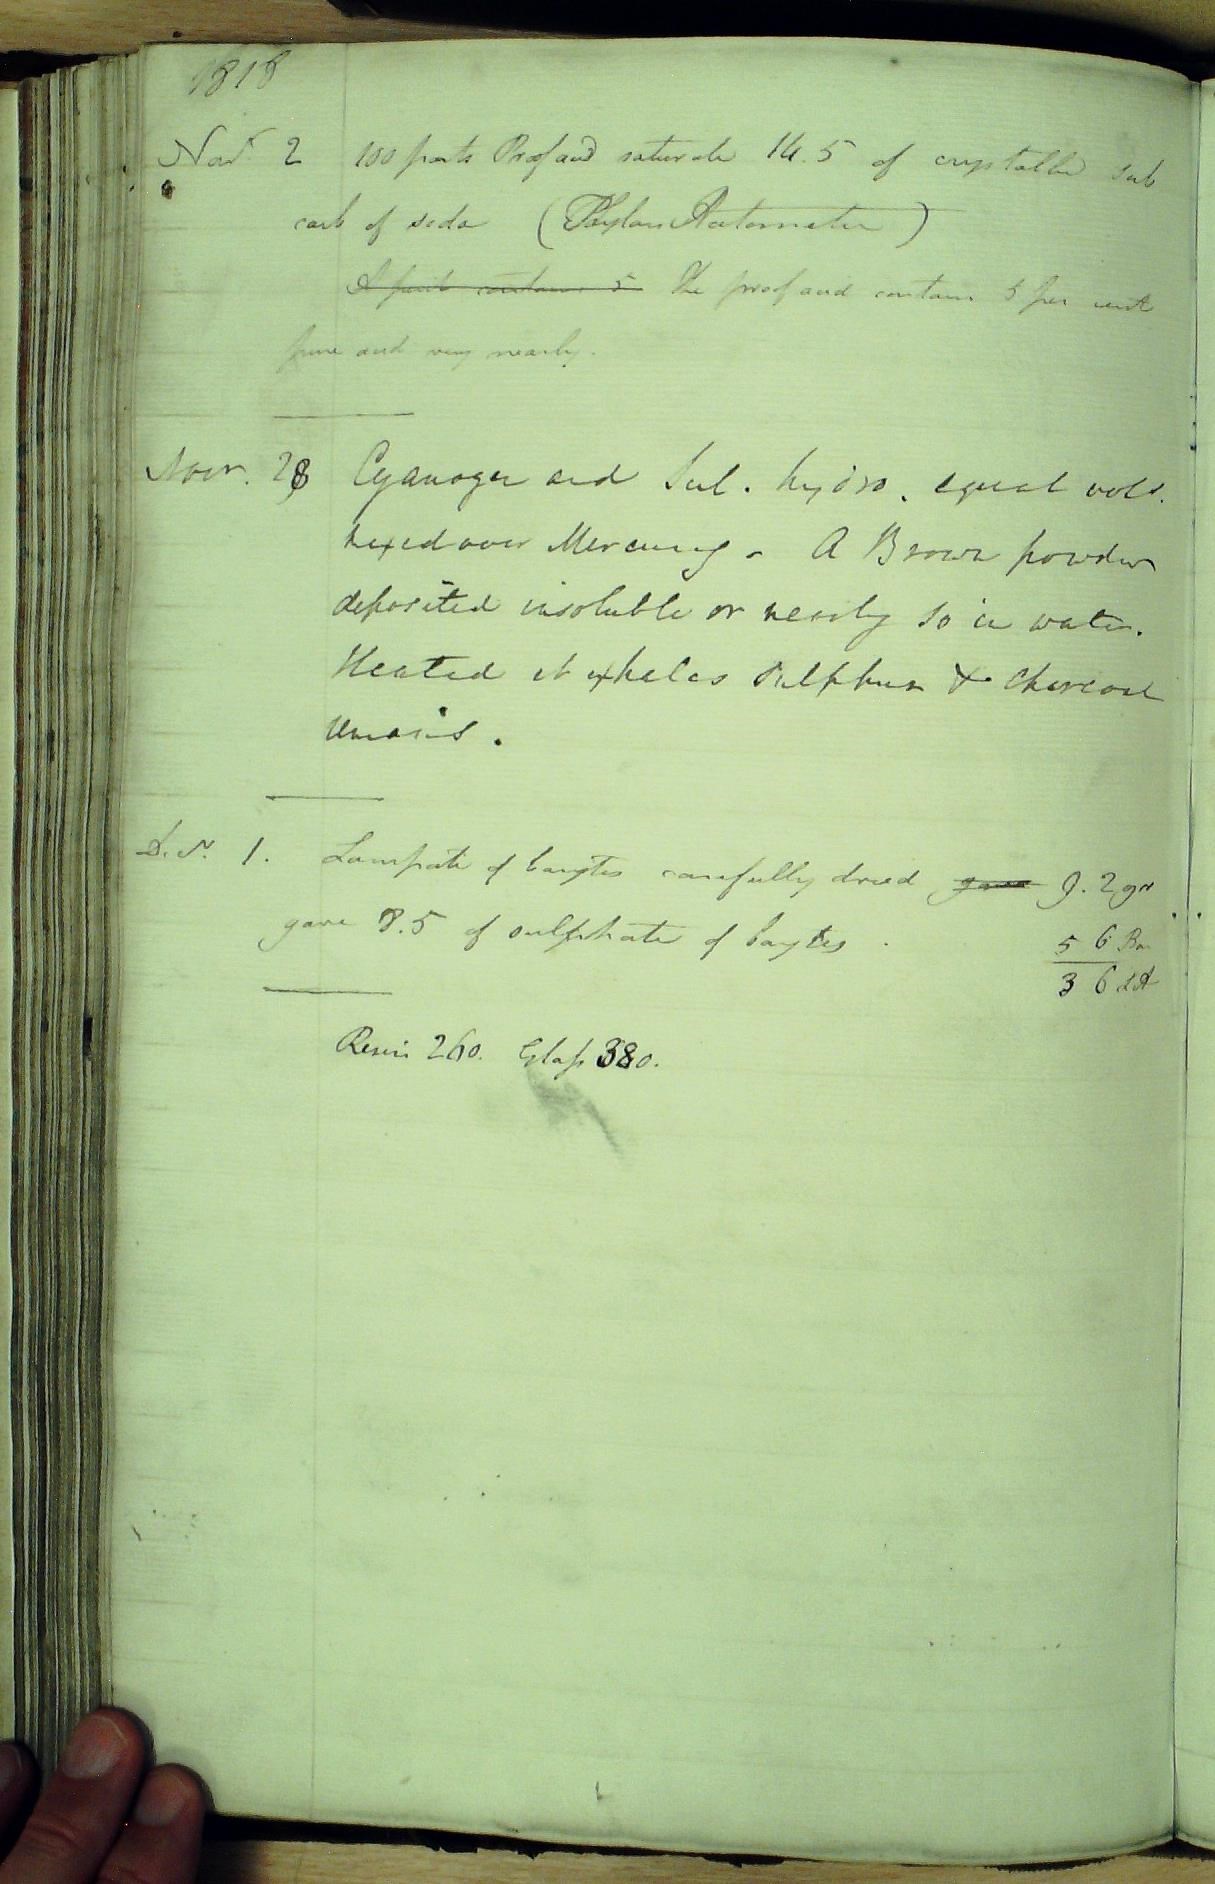 1818
Novr 2 100 parts Proof acid saturate 14.5 of crystalld sub
carb of soda (Taylors Acetometer)
A pint contains 5 The proof acid contains 5 per cent
pure acid very nearly.
Novr. 28 Cyanogen and Sul. hydro. equal vols.
mixed over Mercury - A Brown powder
deposited insoluble or nearly so in water.
Heated it exhales Sulphur & Charcoal
remains.
Decr. 1. Lampate of barytes carefully dried gave 9.2 grs
gave 8.5 of sulphate of barytes. 5 6 Bar
3 6 LA
Resin 260. Glass 380.